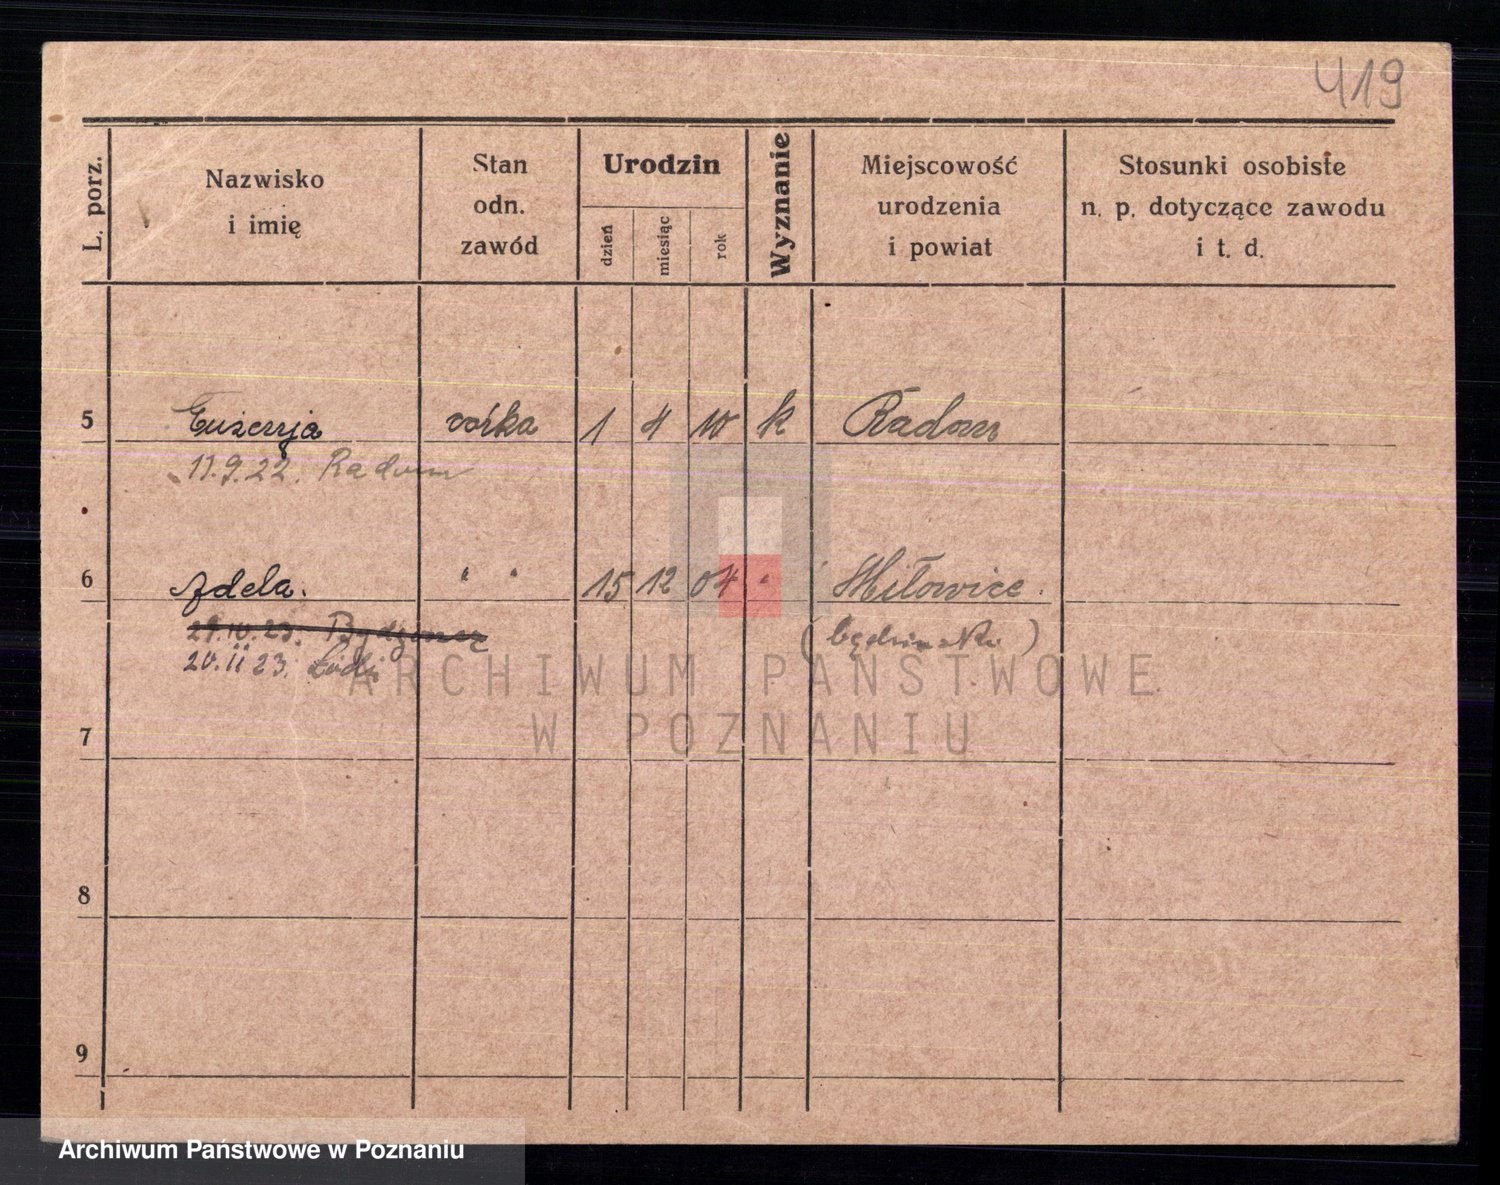 419
L. porz.
Nazwisko i imię
Stan odn. zawód
Urodzin
dzień
miesiąc
rok
Wyznanie
Miejscowość urodzenia i powiat
Stosunki osobiste n. p. dotyczące zawodu i t. d.
5 Eugenja córka 1 4 10 k Radom
11.9.22. Radom
6 Adela. " " 15 12 04 " Miłowice.
29.10.23. Bydgoszcz
20.11 23. Łódź
ARCHIWUM PAŃSTWOWE
W POZNANIU
7
8
9
Archiwum Państwowe w Poznaniu